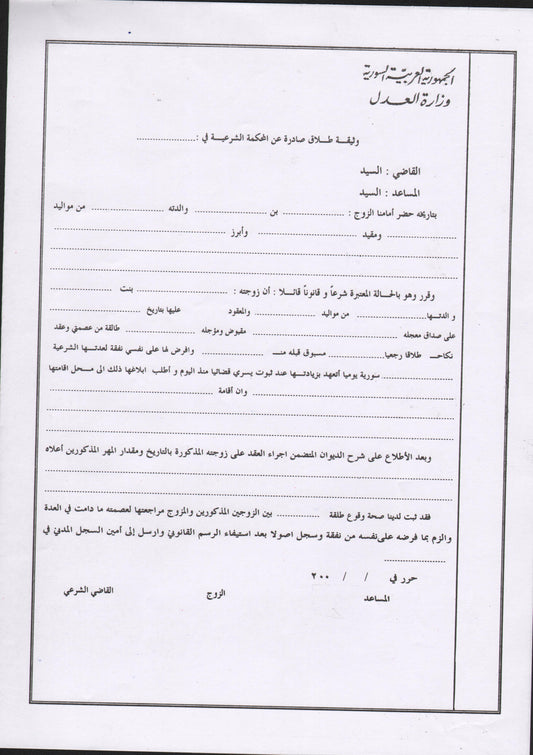 الجمهورية العربية السورية
وزارة العدل
وثيقة طلاق صادرة عن المحكمة الشرعية في : ......................
القاضي : السيد
المساعد : السيد
بتاريخه حضر أمامنا الزوج : .................... بن .................... والدته .................... من مواليد
.................... ومقيد .................... وأبرز ....................
....................
....................
وقرر وهو بالحالة المعتبرة شرعاً و قانوناً قائلا : أن زوجته : .................... بنت ....................
و الدتها .................... من مواليد .................... والمعقود عليها بتاريخ ....................
على صداق معجله .................... مقبوض ومؤجله .................... طالقة من عصمتي وعقد
نكاحي طلاقا رجعيا .................... مسبوق قبله منه .................... وافرض لها على نفسي نفقة لعدتها الشرعية
.................... سورية يوميا أتعهد بزيادتها عند ثبوت يسري قضائيا منذ اليوم و أطلب ابلاغها ذلك الى محل اقامتها
.................... وان أقامة ....................
....................
....................
وبعد الأطلاع على شرح الديوان المتضمن اجراء العقد على زوجته المذكورة بالتاريخ ومقدار المهر المذكورين أعلاه
....................
....................
فقد ثبت لدينا صحة وقوع طلقة .................... بين الزوجين المذكورين والمزوج مراجعتها لعصمته ما دامت في العدة
والزم بما فرضه على نفسه من نفقة وسجل اصولا بعد استيفاء الرسم القانوني وارسل إلى أمين السجل المدني في
....................
حرر في / / ٢٠٠
المساعد الزوج القاضي الشرعي